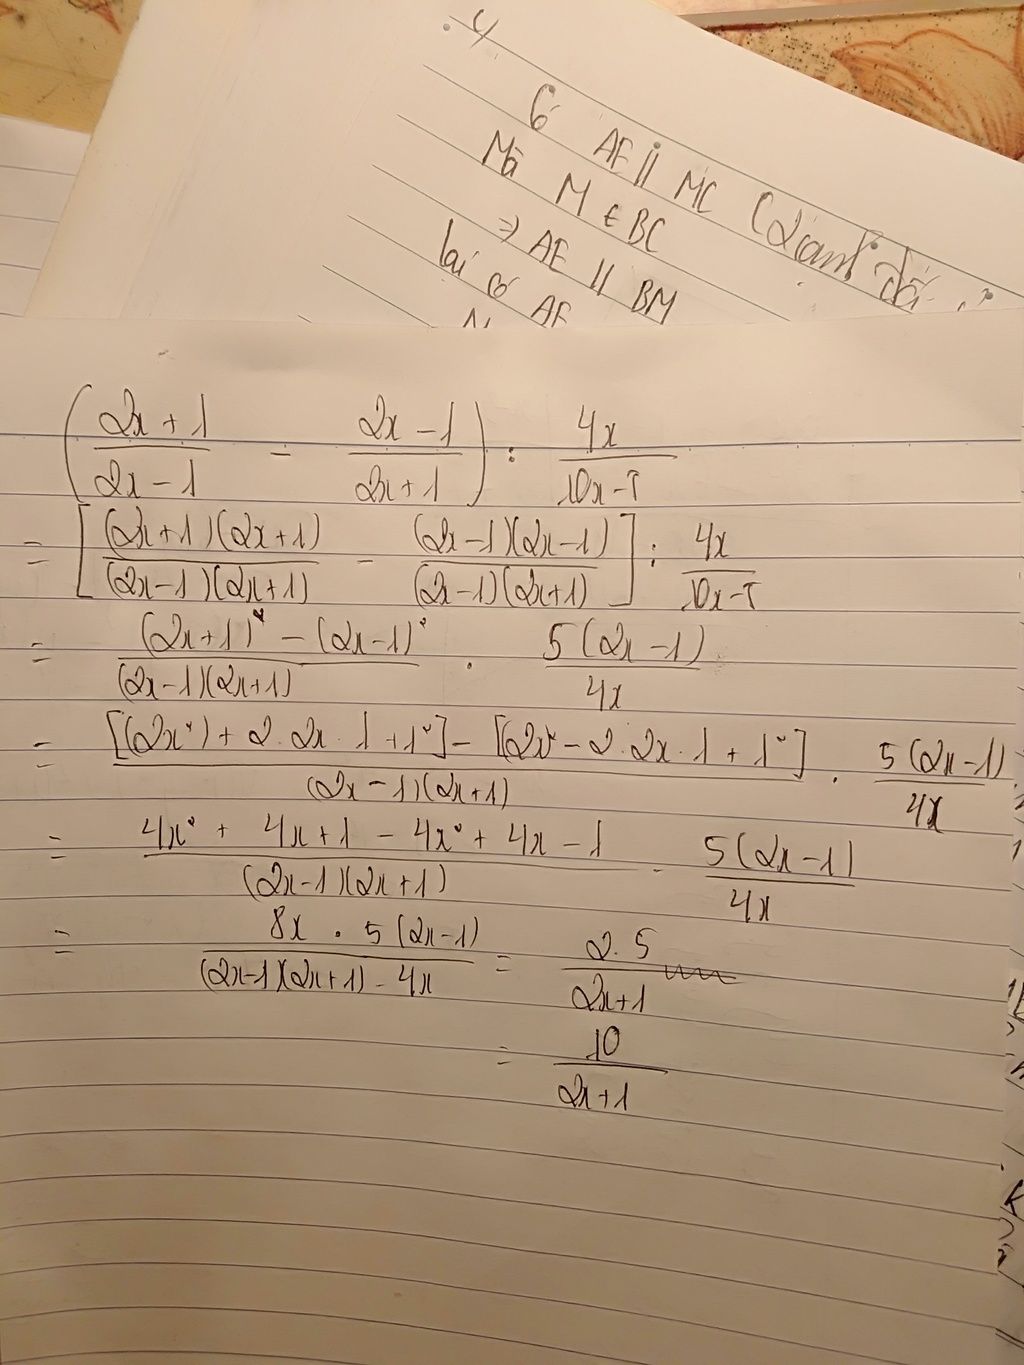 Có AE || MC
Mà M ∈ BC
⇒ AE || BM
lại có AE
( (2x+1)/(2x-1) - (2x-1)/(2x+1) ) : 4x/(10x-5)
= [ (2x+1)(2x+1)/(2x-1)(2x+1) - (2x-1)(2x-1)/(2x-1)(2x+1) ] : 4x/(10x-5)
= ((2x+1)² - (2x-1)²)/(2x-1)(2x+1) · 5(2x-1)/4x
= ([(2x²)+2.2x.1+1²] - [(2x²-2.2x.1+1²])/(2x-1)(2x+1) · 5(2x-1)/4x
= (4x²+4x+1-4x²+4x-1)/(2x-1)(2x+1) · 5(2x-1)/4x
= 8x.5(2x-1)/(2x-1)(2x+1).4x = 2.5/(2x+1)
= 10/(2x+1)